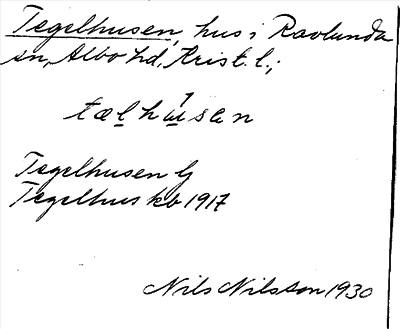 Tegelhusen, hus i Ravlunda
sn, Albo hd, Krist. l.;
tælhúsan
Tegelhusen Lj
Tegelhus kb 1917
Nils Nilsson 1930